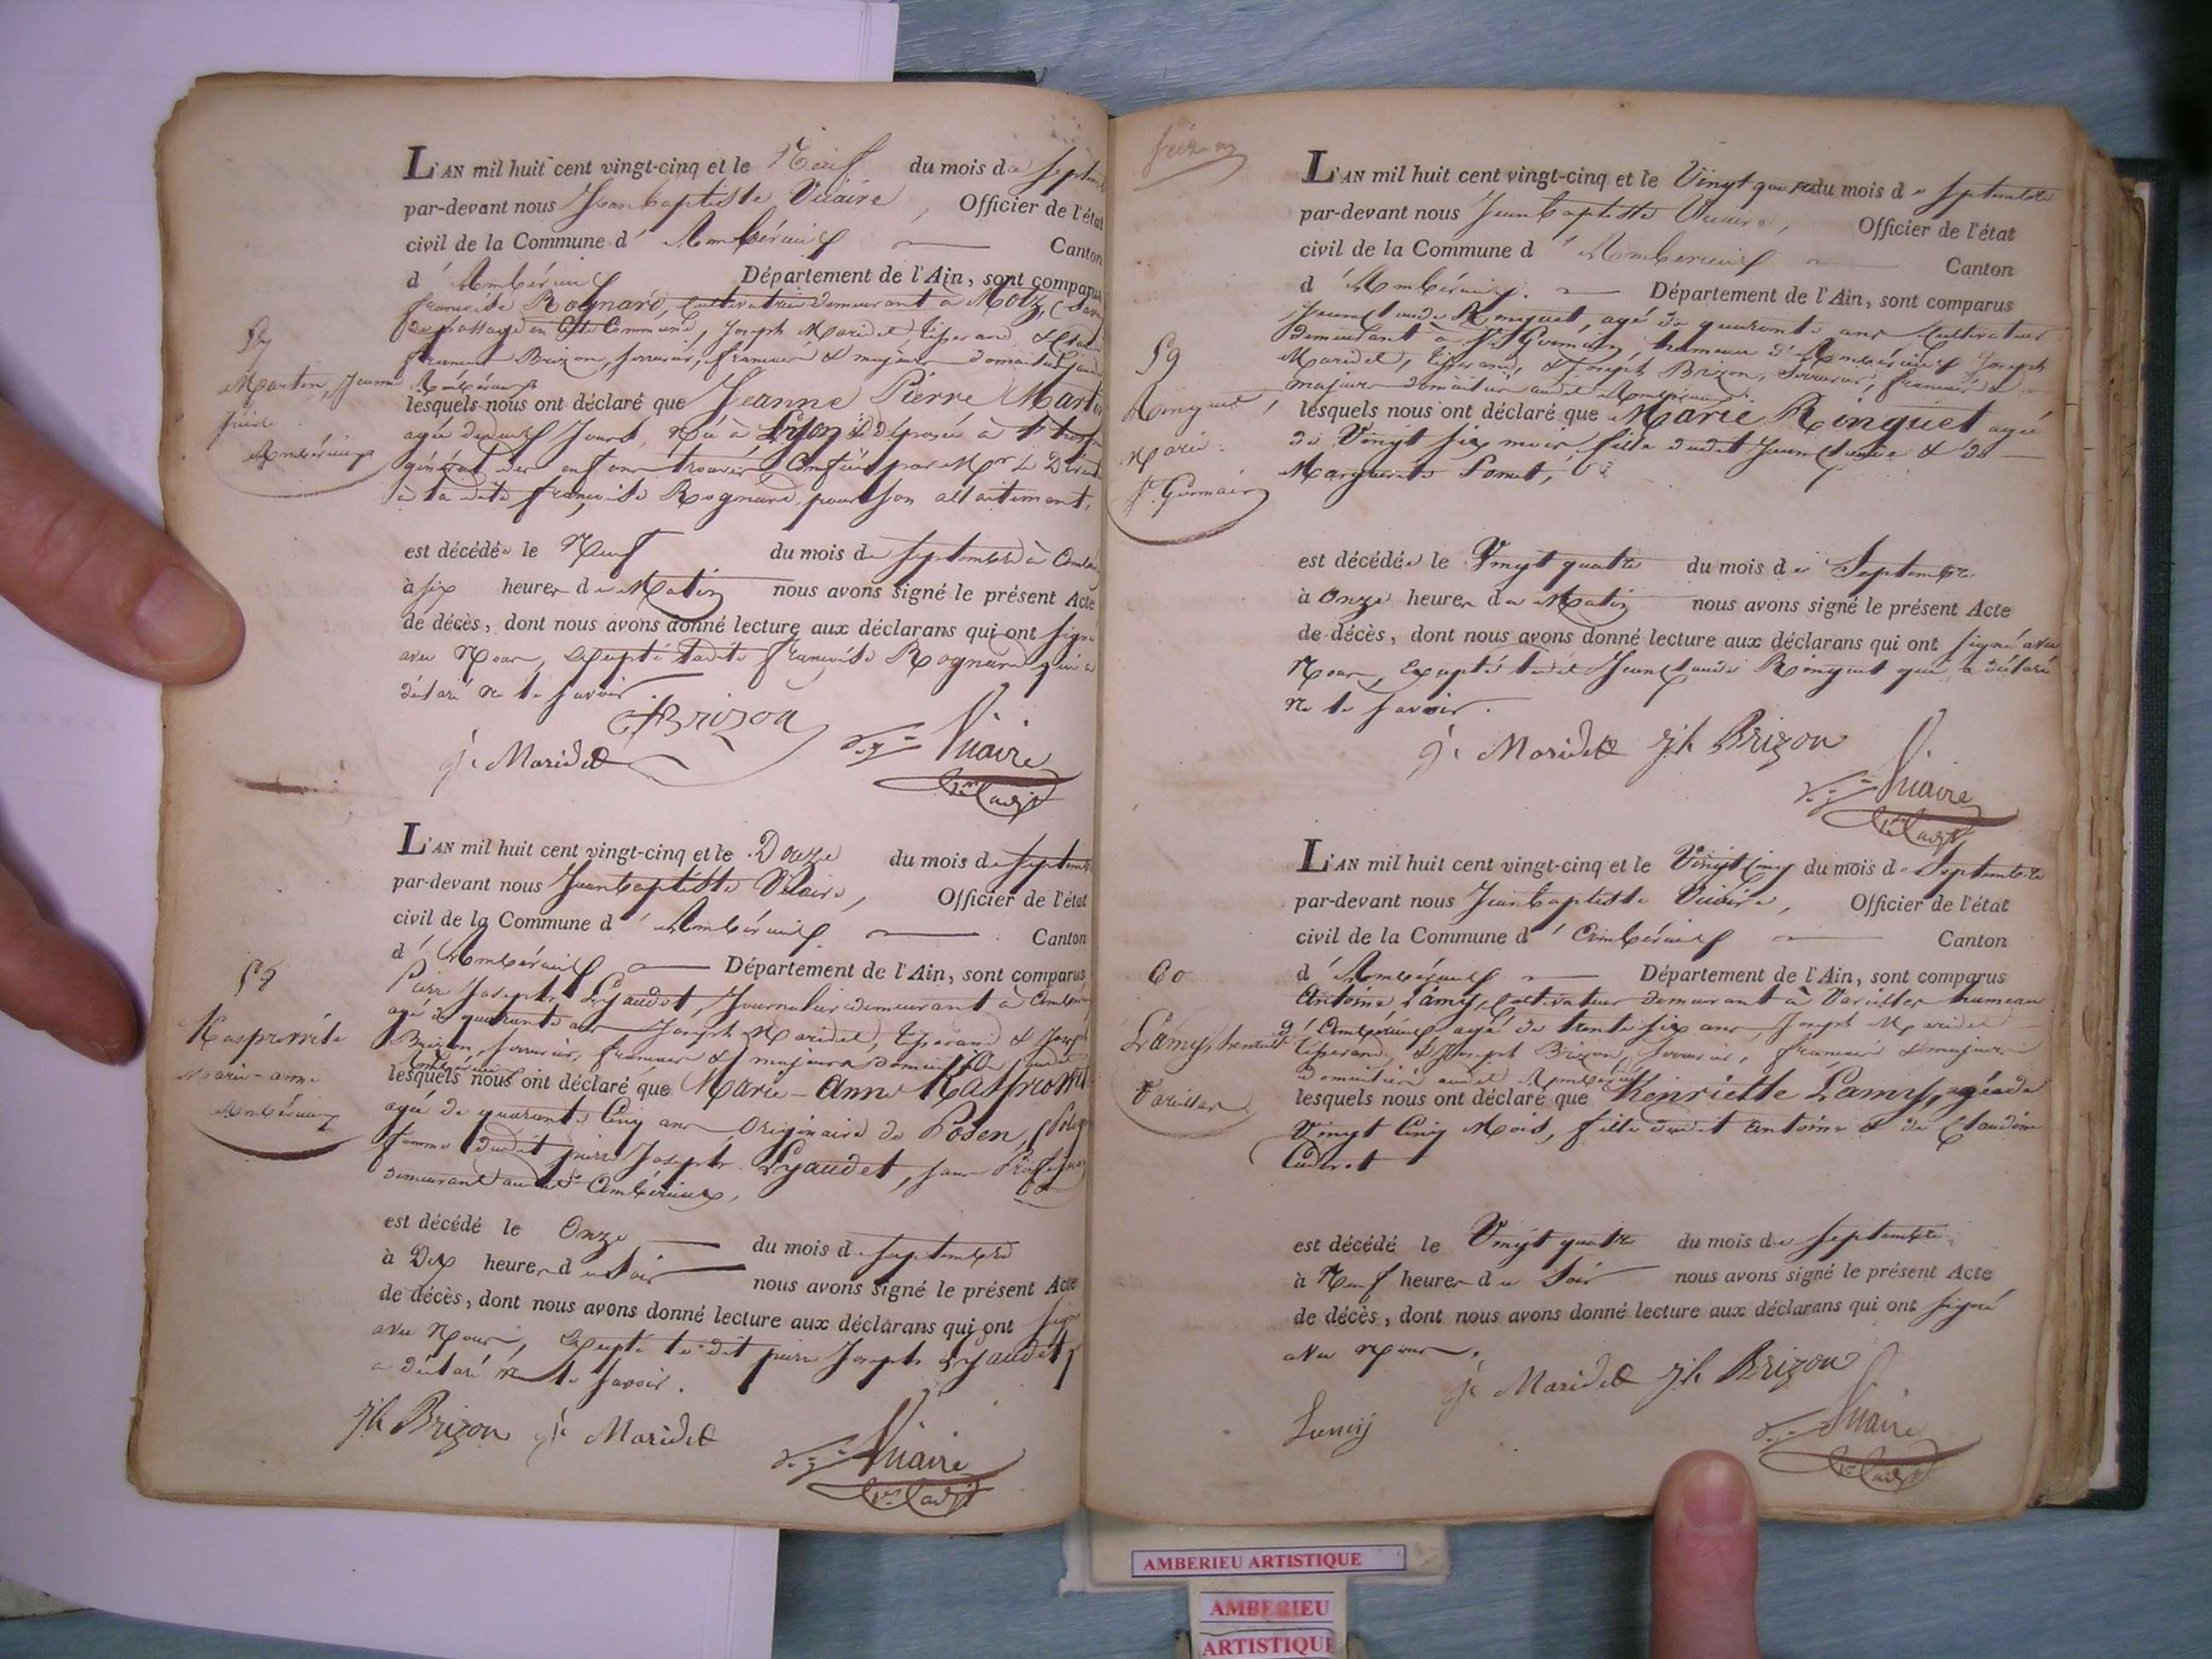 L'AN mil huit cent vingt-cinq et le Neuf du mois de Septembre
par-devant nous Jean baptiste Vicaire, Officier de l'état
civil de la Commune d' Ambérieux Canton
d' Ambérieux Département de l'Ain, sont comparus
françoise Rognard, Cultivatrice demeurant à Motz,
de passage en cette Commune, Joseph Maridet, tisserand &
Brizon, serrurier, français & majeurs domiciliés
57
Martin, Jeanne
Ambérieux
Ambérieux
lesquels nous ont déclaré que Jeanne Pierre Martin
agée de neuf Jours, Née à Lyon déposée à
général des enfans trouvés Confiée par Mr Le
à la dite françoise Rognard, pour son allaitement,
est décédée le Neuf du mois de Septembre à
à six heures du Matin nous avons signé le présent Acte
de décès, dont nous avons donné lecture aux déclarans qui ont signé
avec Nous, Excepté ladite françoise Rognard qui a
déclaré ne le savoir
Brizon
Maridet Vicaire
L'AN mil huit cent vingt-cinq et le Douze du mois de Septembre
par-devant nous Jean baptiste Vicaire, Officier de l'état
civil de la Commune d' Ambérieux Canton
d' Ambérieux Département de l'Ain, sont comparus
Pierre Joseph Lyaudet, Journalier demeurant à
agé de quarante ans Joseph Maridet, tisserand & Joseph
Brizon, serrurier, français & majeurs domiciliés audit
Ambérieux
58
Marie-anne
Ambérieux
lesquels nous ont déclaré que Marie-Anne
agée de quarante Cinq ans, Originaire de Posen,
femme dudit pierre Joseph Lyaudet, sans Profession
demeurant audit Ambérieux,
est décédé le Onze du mois de Septembre
à Dix heures du Soir nous avons signé le présent Acte
de décès, dont nous avons donné lecture aux déclarans qui ont signé
avec Nous, Excepté le dit pierre Joseph Lyaudet
a déclaré ne le savoir.
Jh Brizon Maridet Vicaire
L'AN mil huit cent vingt-cinq et le Vingt quatre du mois de Septembre
par-devant nous Jean baptiste Vicaire, Officier de l'état
civil de la Commune d' Ambérieux Canton
d' Ambérieux. Département de l'Ain, sont comparus
Jean Claude Ringuet, agé de quarante ans Cultivateur
demeurant à St Germain, hameau d'Ambérieux Joseph
Maridet, tisserand, & Joseph Brizon, Serrurier, français &
majeurs domiciliés audit Ambérieux.
59
Ringuet,
Marie
St Germain
lesquels nous ont déclaré que Marie Ringuet agée
de Vingt six mois, fille dudit Jean Claude & de
Marguerite Ponut,
est décédée le Vingt quatre du mois de Septembre
à Onze heures du Matin nous avons signé le présent Acte
de décès, dont nous avons donné lecture aux déclarans qui ont signé avec
Nous, Excepté ledit Jean Claude Ringuet qui a déclaré
ne le savoir.
Maridet Jh Brizon
Vicaire
L'AN mil huit cent vingt-cinq et le Vingt Cinq du mois de Septembre
par-devant nous Jean baptiste Vicaire, Officier de l'état
civil de la Commune d' Ambérieux Canton
d' Ambérieux Département de l'Ain, sont comparus
Antoine Lamy, Cultivateur demeurant à Vareilles hameau
d'Ambérieux agé de trente six ans, Joseph Maridet
tisserand, & Joseph Brizon, serrurier, français & majeurs
domiciliés audit Ambérieux
60
Lamy, henriette
Vareilles
lesquels nous ont déclaré que Henriette Lamy, agée de
Vingt Cinq Mois, fille dudit antoine & de Claudine
est décédé le Vingt quatre du mois de Septembre
à Neuf heures du Soir nous avons signé le présent Acte
de décès, dont nous avons donné lecture aux déclarans qui ont signé
avec Nous.
Maridet Jh Brizon
Lamy Vicaire
AMBERIEU ARTISTIQUE
AMBERIEU
ARTISTIQUE